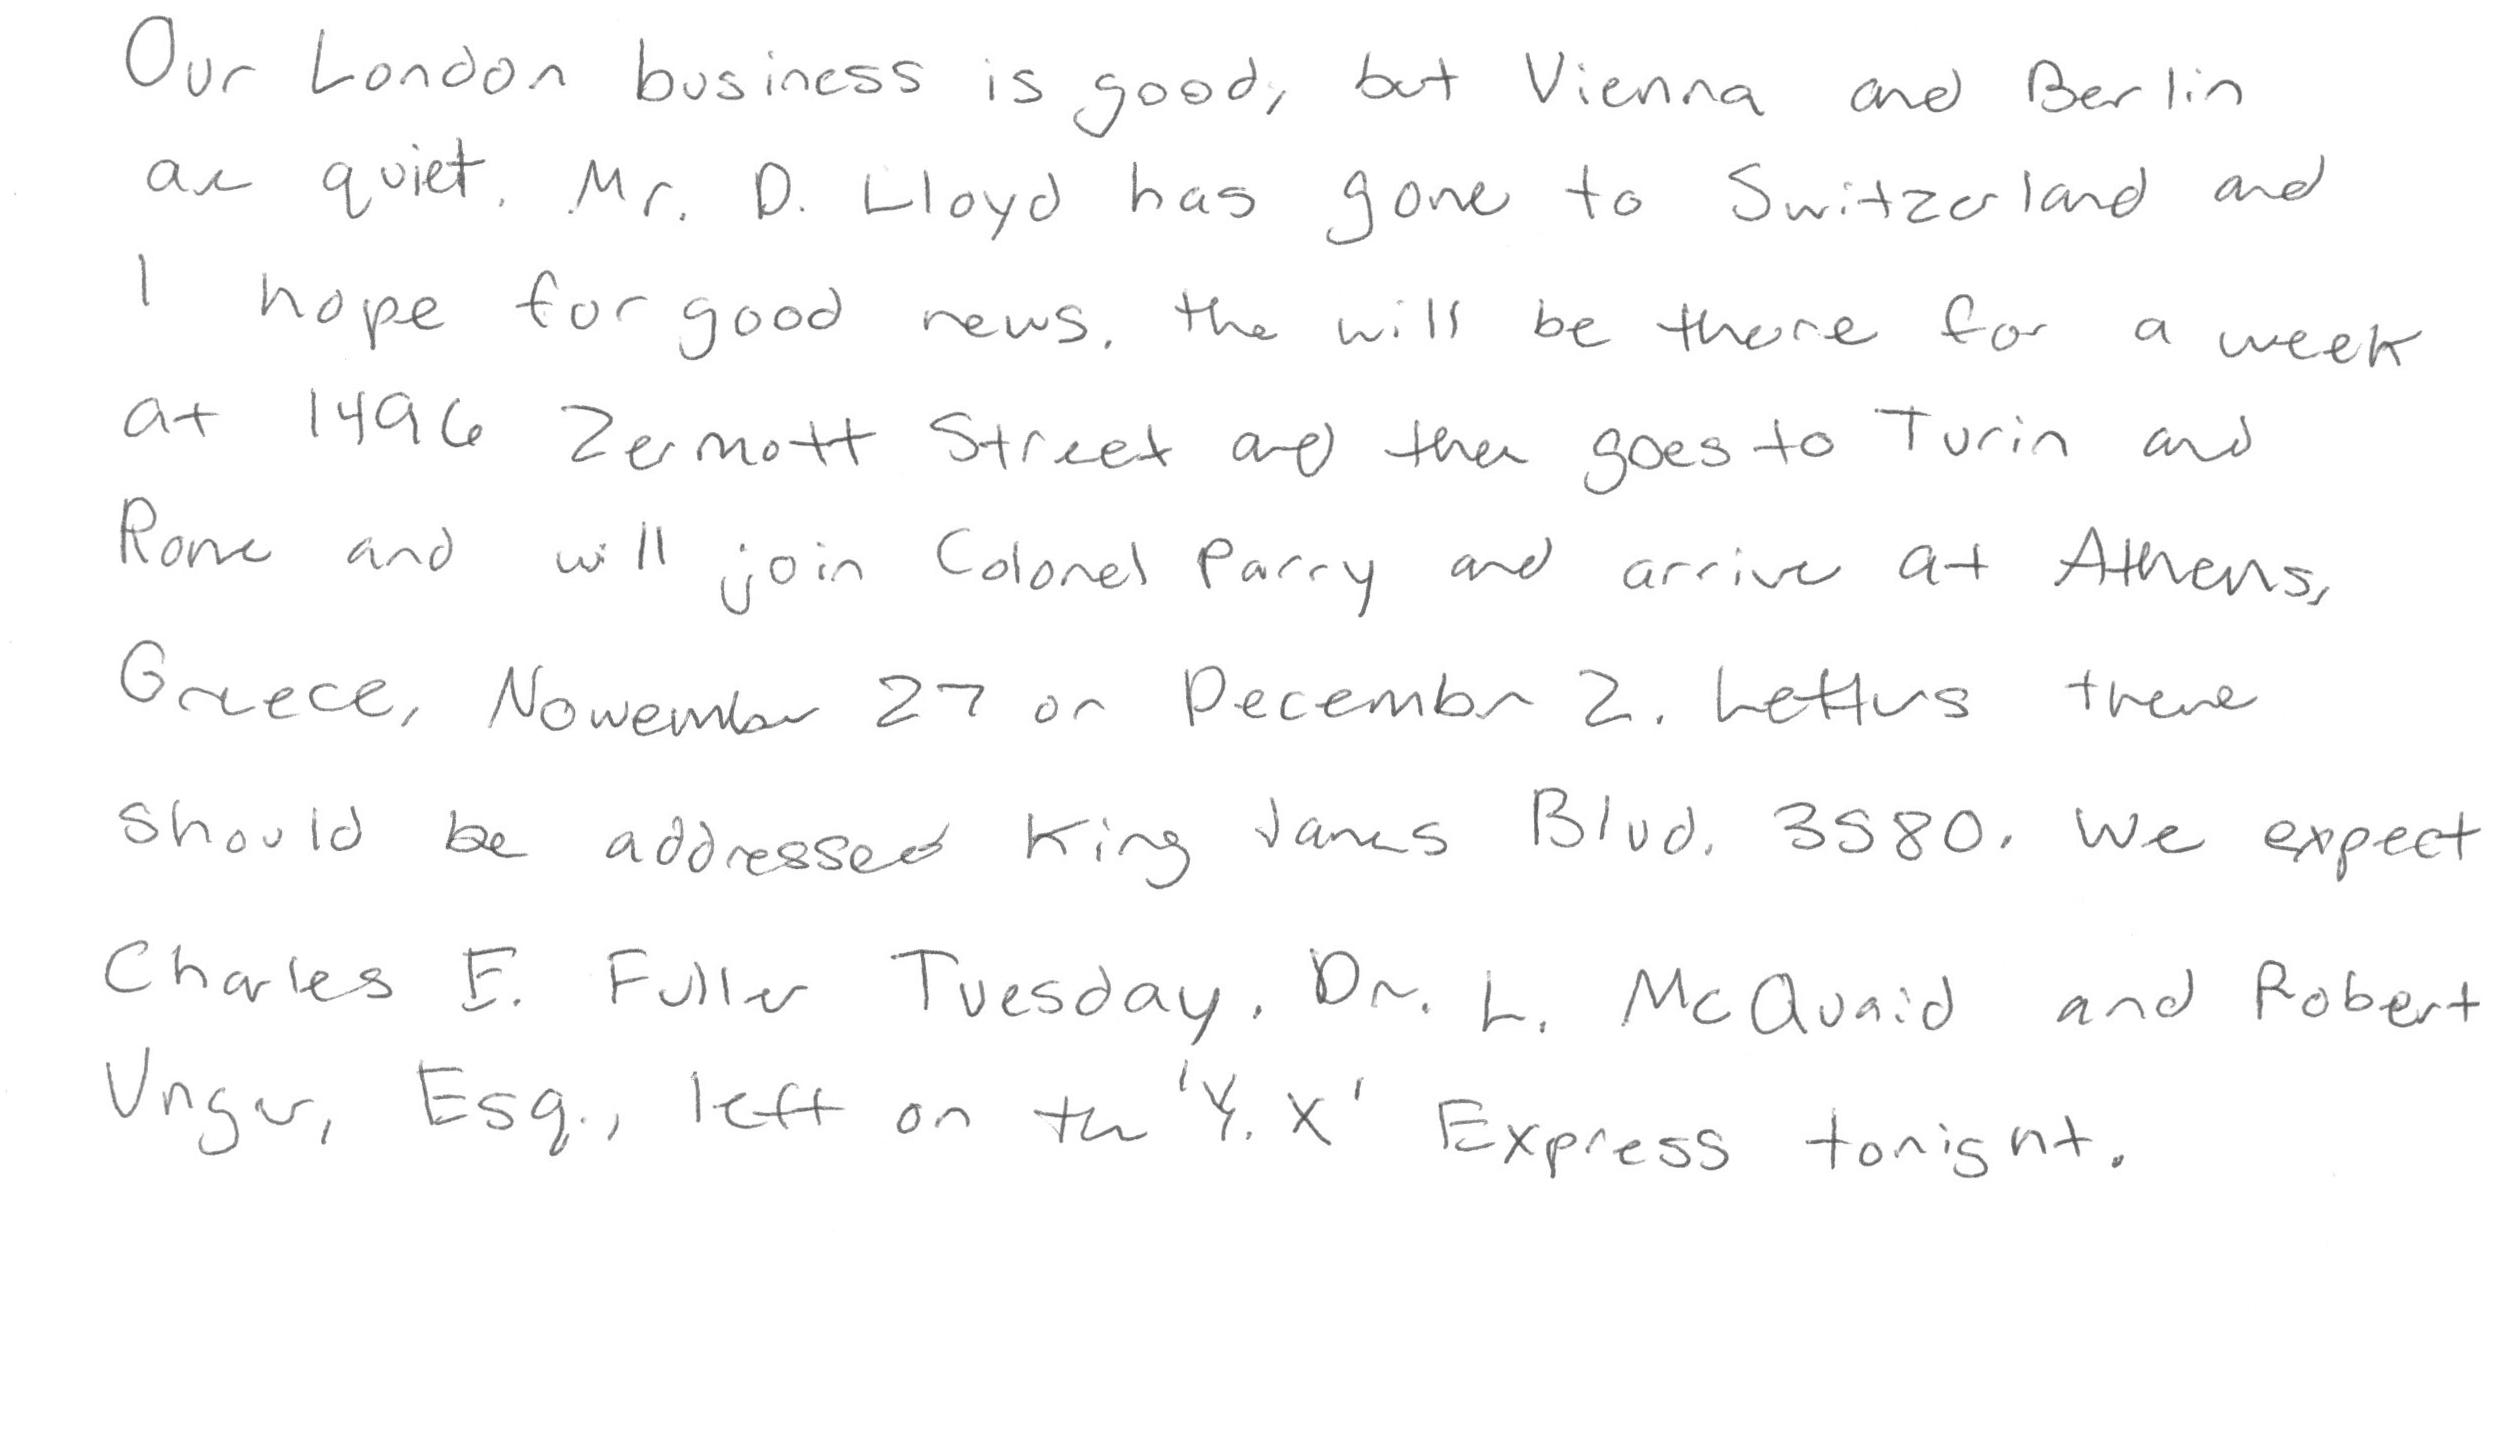 Our London business is good, but Vienna and Berlin
are quiet. Mr. D. Lloyd has gone to Switzerland and
I hope for good news. the will be there for a week
at 1496 Zermott Street and then goes to Turin and
Rome and will join Colonel Parry and arrive at Athens,
Greece, November 27 or December 2. Letters there
should be addressed King James Blvd. 3580. We expect
Charles E. Fuller Tuesday. Dr. L. McQuaid and Robert
Unger, Esq., left on the 'Y. X' Express tonight.